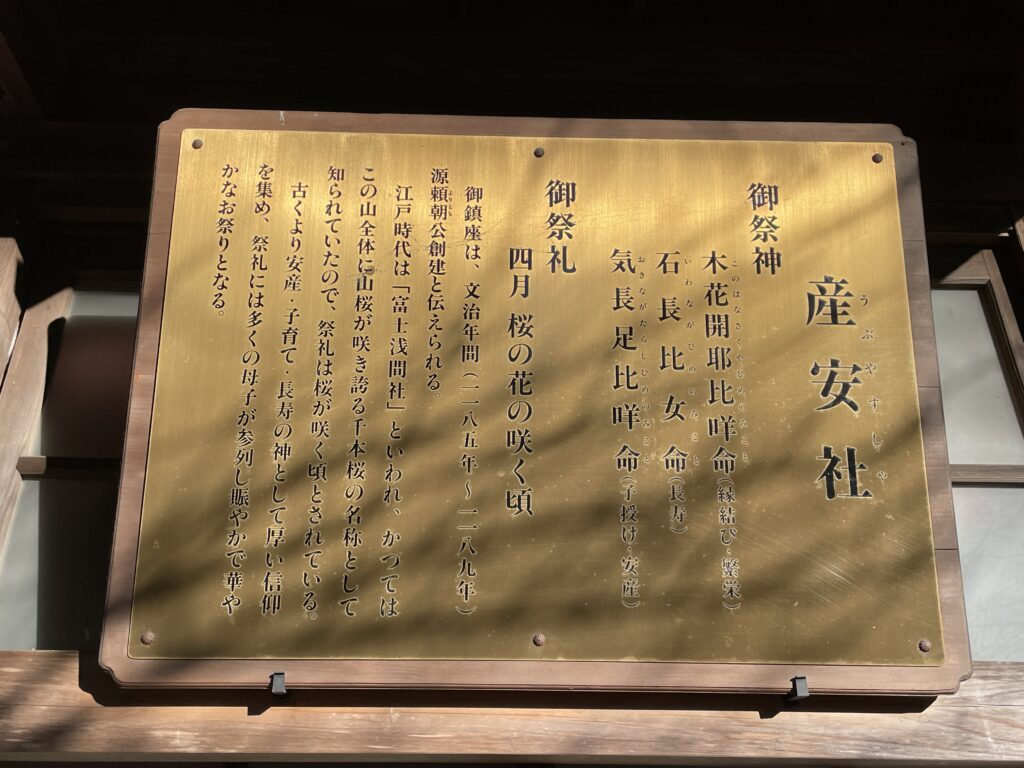 産安社
うぶやすしゃ
御祭神
木花開耶比咩命(縁結び・繁栄)
このはなさくやひめのみこと
石長比女命(長寿)
いわながひめのみこと
気長足比咩命(子授け・安産)
おきながたらしひめのみこと
御祭礼
四月 桜の花の咲く頃
御鎮座は、文治年間(一一八五年~一一八九年)
源頼朝公創建と伝えられる。
よりとも
江戸時代は「富士浅間社」といわれ、かつては
この山全体に山桜が咲き誇る千本桜の名称として
知られていたので、祭礼は桜が咲く頃とされている。
古くより安産・子育て・長寿の神として厚い信仰
を集め、祭礼には多くの母子が参列し賑やかで華や
かなお祭りとなる。